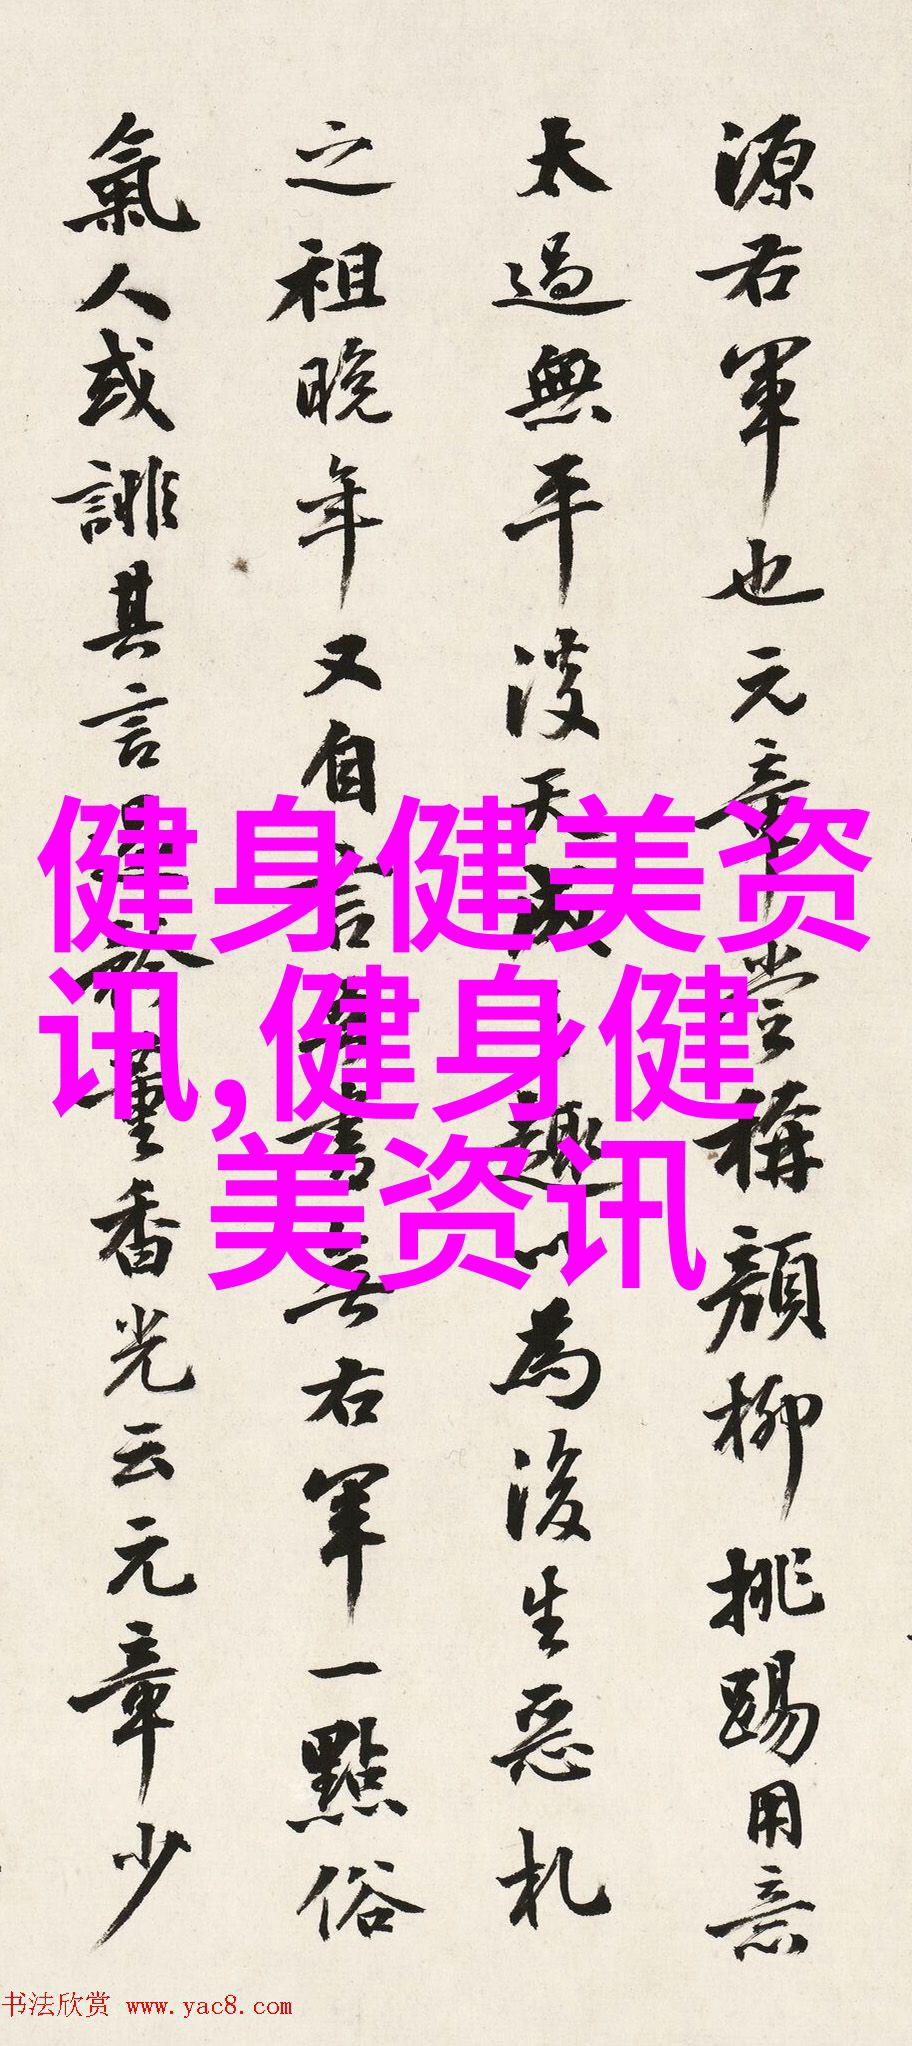 源右軍也元章嘗稱顏柳挑踢用意
太過無平淡天成之趣以為後生惡札
之祖晚年又自言吾書無右軍一點俗
氣人或誹其言是於董香光云元章少
健身健美资
讯,健身健
美资讯
书法欣赏 www.yac8.com